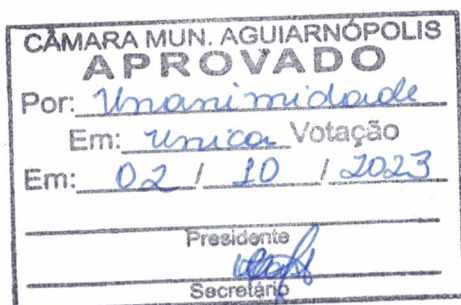 CÂMARA MUN. AGUIARNÓPOLIS
APROVADO
Por: Unanimidade
Em: unica Votação
Em: 02 / 10 / 2023
Presidente
Secretário